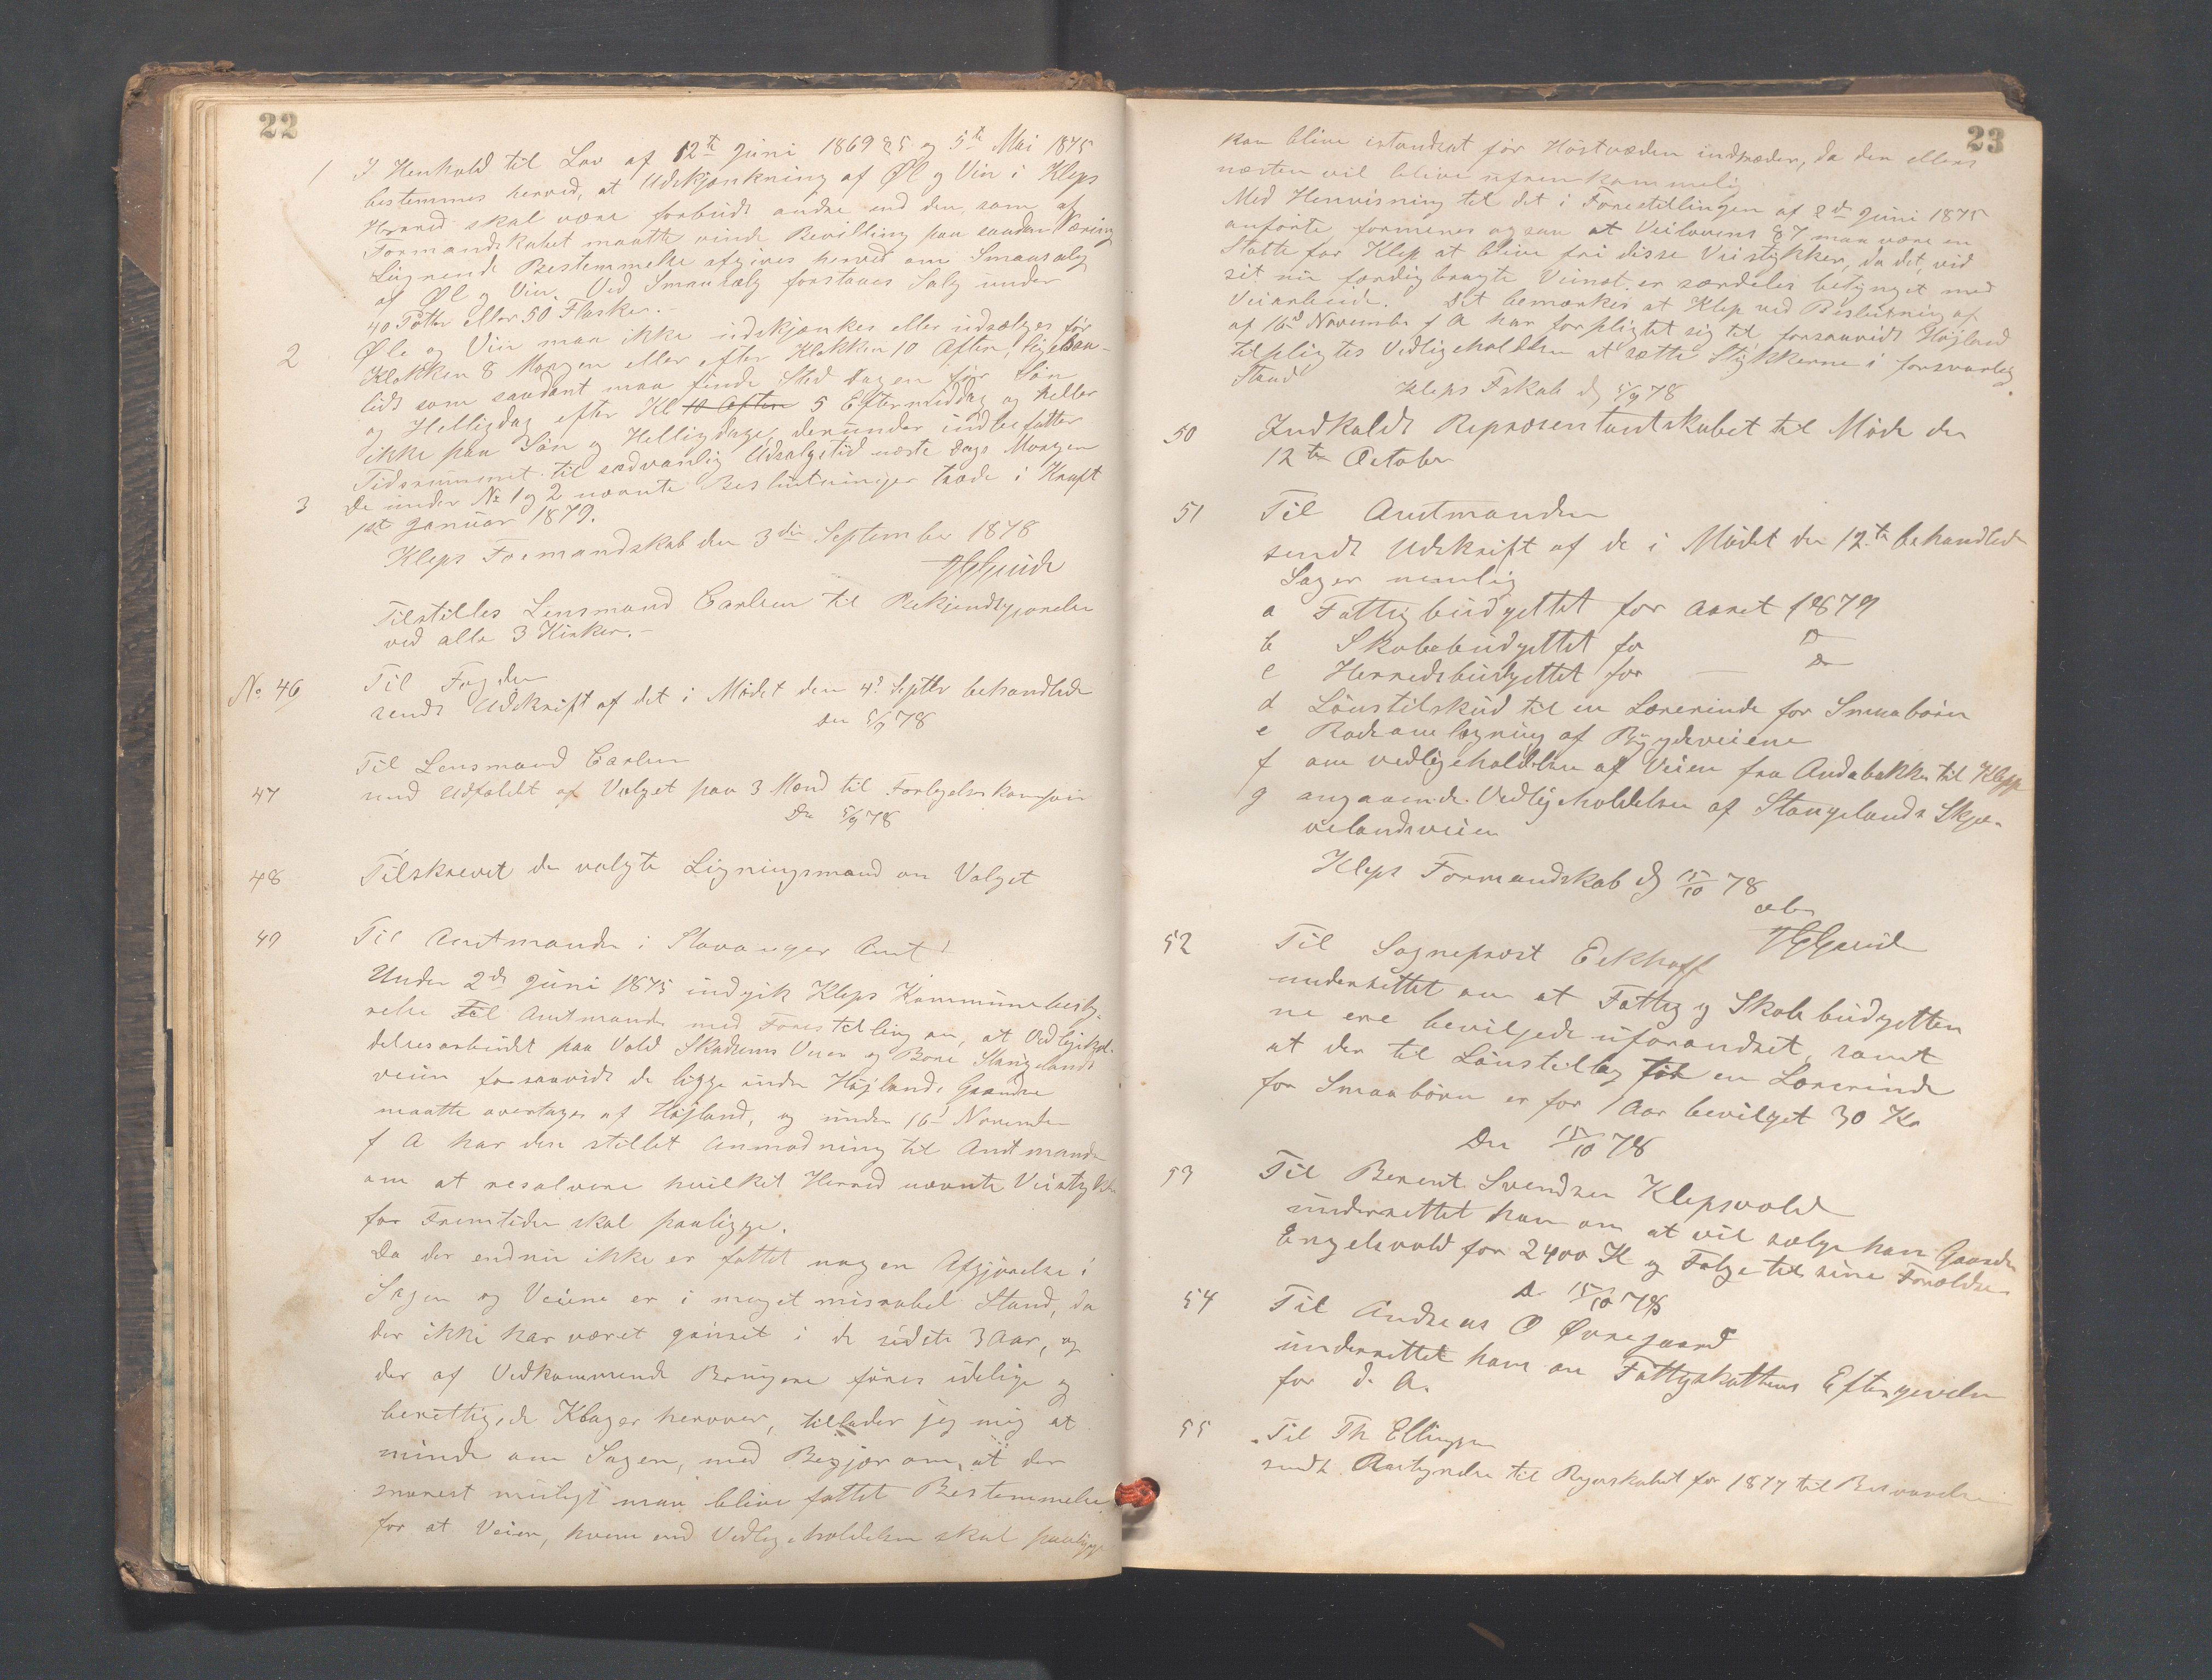 22
1 I Henhold til Lov af 12te Juni 1869 § 5 og 5te Mai 1875
bestemmes herved, at Udskjænkning af Øl og Vin i Kleps
Herred skal være forbudt andre end den, som af
Formandskabet maatte vinde Bevilling paa saadan Næring
Lignende Bestemmelse afgives herved om Smaasalg
af Øl og Vin. Ved Smaasalg forstaaes Salg under
40 Potter eller 50 Flasker.-
2 Øl og Vin maa ikke udskjænkes eller udsælges før
Klokken 8 Morgen eller efter Klokken 10 Aften, ligesaa-
lidt som saadant maa finde Sted Dagen før Søn
og Helligdag efter Kl 10 Aften 5 Eftermiddag og heller
ikke paa Søn og Helligdage, derunder indbefattet
Tidsrummet til sædvanlig Udsalgstid næste Dags Morgen
3 De under No 1 og 2 nævnte Beslutninger træde i Kraft
1st Januar 1879.
Kleps Formandskab den 3die September 1878
Tilstilles Lensmand Carlsen til Bekjendtgjørelse
ved alle 3 Kirker.-
No 46 Til Fogden
sendt Udskrift af det i Mødet den 4d Septbr behandlede
Den 5/9 78
Til Lensmand Carlsen
47 send Udfaldet af Valget paa 3 Mænd til Forligelseskommission
Den 5/9 78
48 Tilskrevet de valgte Ligningsmænd om Valget
49 Til Amtmanden i Stavanger Amt!
Under 2de Juni 1875 indgik Kleps Kommunebesty-
relse Til Amtmanden med Forestilling om, at Vedligehol-
delsesarbeidet paa Vold Skadsems Veien og Bore Stangelands
veien forsaavidt de ligge under Højlands Grændse
maatte overtages af Højland, og under 16d November
f A har den stillet Anmodning til Amtmanden
om at resolvere hvilket Herred nævnte Veistykker
for Fremtiden skal paaligge.
Da der endnu ikke er fattet nogen Afgjørelse i
Sagen og Veiene er i meget miserabel Stand, da
der ikke har været gruset i de sidste 3 Aar, og
der af Vedkommende Brugere føres idelige og
berettigede Klager herover, tillader jeg mig at
minde om Sagen, med Begjær om, at der
snarest muligt maa blive fattet Bestemmelse
for at Veien, hvem end Vedligeholdelsen skal paaligge
23
kan blive istandsat før Høstvæden indtræder, da den ellers
næsten vil blive ufremkommelig
Med Henvisning til det i Forestillingen af 2de Juni 1875
anførte formenes ogsaa at Veilovens § 7 maa være en
Støtte for Klep at blive fri disse Veistykker, da det, ved
sit nu færdigbragte Veinæt er særdeles betynget med
Veiarbeide. Det bemærkes at Klep ved Beslutning af
af 16d November f A har forpligtet sig til, forsaavidt Højland
tilpligtes Vedligeholdelsen at sætte Stykkerne i forsvarlig
Stand.
Kleps Fskab d 5/9 78
50 Indkaldt Repræsentantskabet til Møde den
12te October
51 Til Amtmanden
sendt Udskrift af de i Mødet den 12te behandlede
Sager nemlig
a Fattigbudgettet for Aaret 1879
b Skolebudgettet for Do
c Herredsbudgettet for — Do
d Lønstilskud til en Lærerinde for Smaabørn
e Rodeomlægning af Bygdeveiene
f om vedligeholdelsen af Veien fra Andabakke til Klepp
g angaaende Vedligeholdelsen af Stangelands Skjæ-
velandsveien
Kleps Formandskab d 15/10 78
52 Til Sogneprest Eckhoff
underrettet om at Fattig og Skolebudgetten
ne ere bevilgede uforandret, samt
at der til Lønstillæg for en Lærerinde
for Smaabørn er for 1 Aar bevilget 30 Kr
Den 15/10 78
53 Til Berent Svendsen Klepsvold
underrettet ham om at vil sælge ham Gaarden
Engelsvold for 2400 Kr og Følge til sine Forældre
D. 15/10 78
54 Til Andreas O Øvregaard
underrettet ham om Fattigskattens Eftergivelse
for d. A.
55 Til Th Ellingsen
sendt Antegnelse til Regnskabet for 1877 til Besvarelse